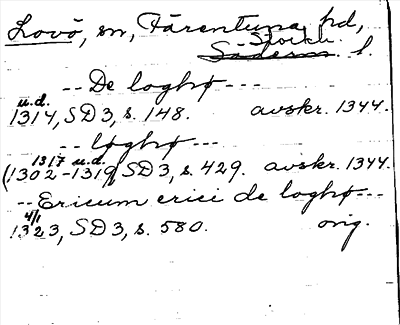 Lovö, sn, Färentuna hd,
Stockh.
Söderm l.
-- De loghø ---
u.d.
1314, SD 3, s. 148. avskr. 1344.
-- løghø ---
1317 u.d.
(1302-1319) SD 3, s. 429. avskr. 1344.
-- Ericum erici de loghø ---
4/1
1323, SD 3, s. 580. orig.